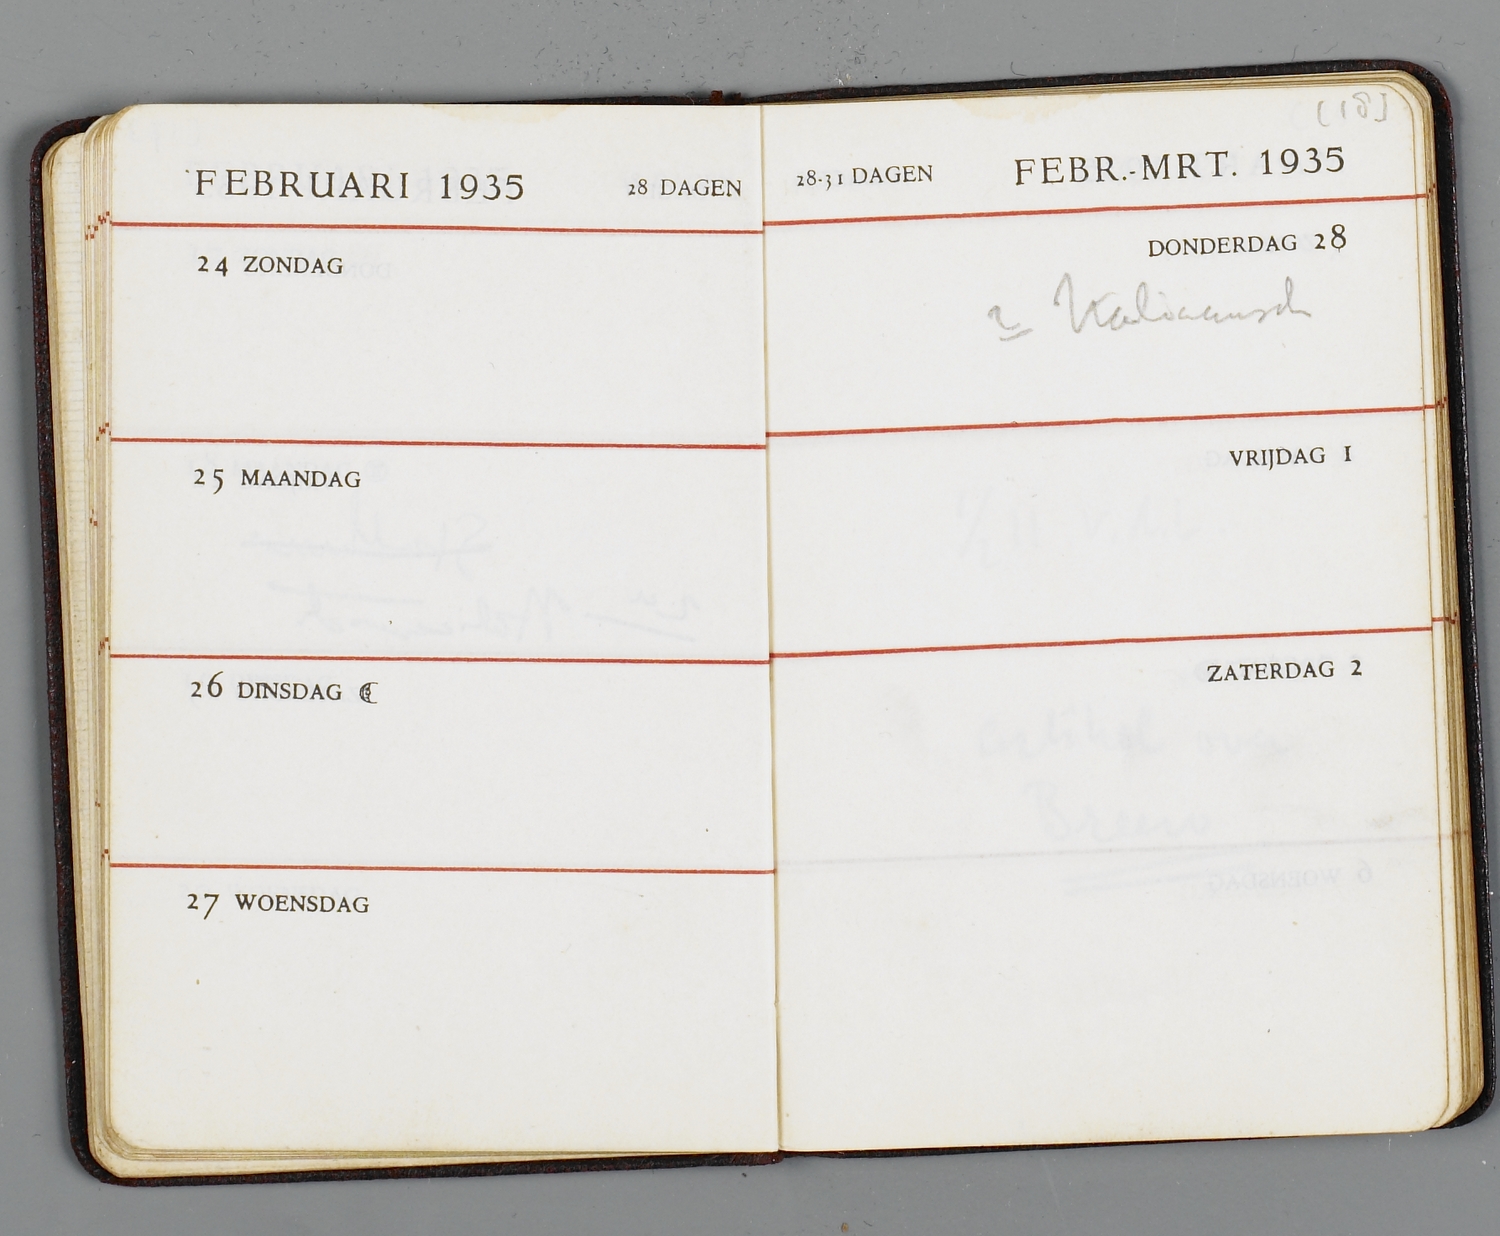 FEBRUARI 1935 28 DAGEN
24 ZONDAG
25 MAANDAG
26 DINSDAG
27 WOENSDAG
[18]
28-31 DAGEN FEBR.-MRT. 1935
DONDERDAG 28
VRIJDAG 1
ZATERDAG 2